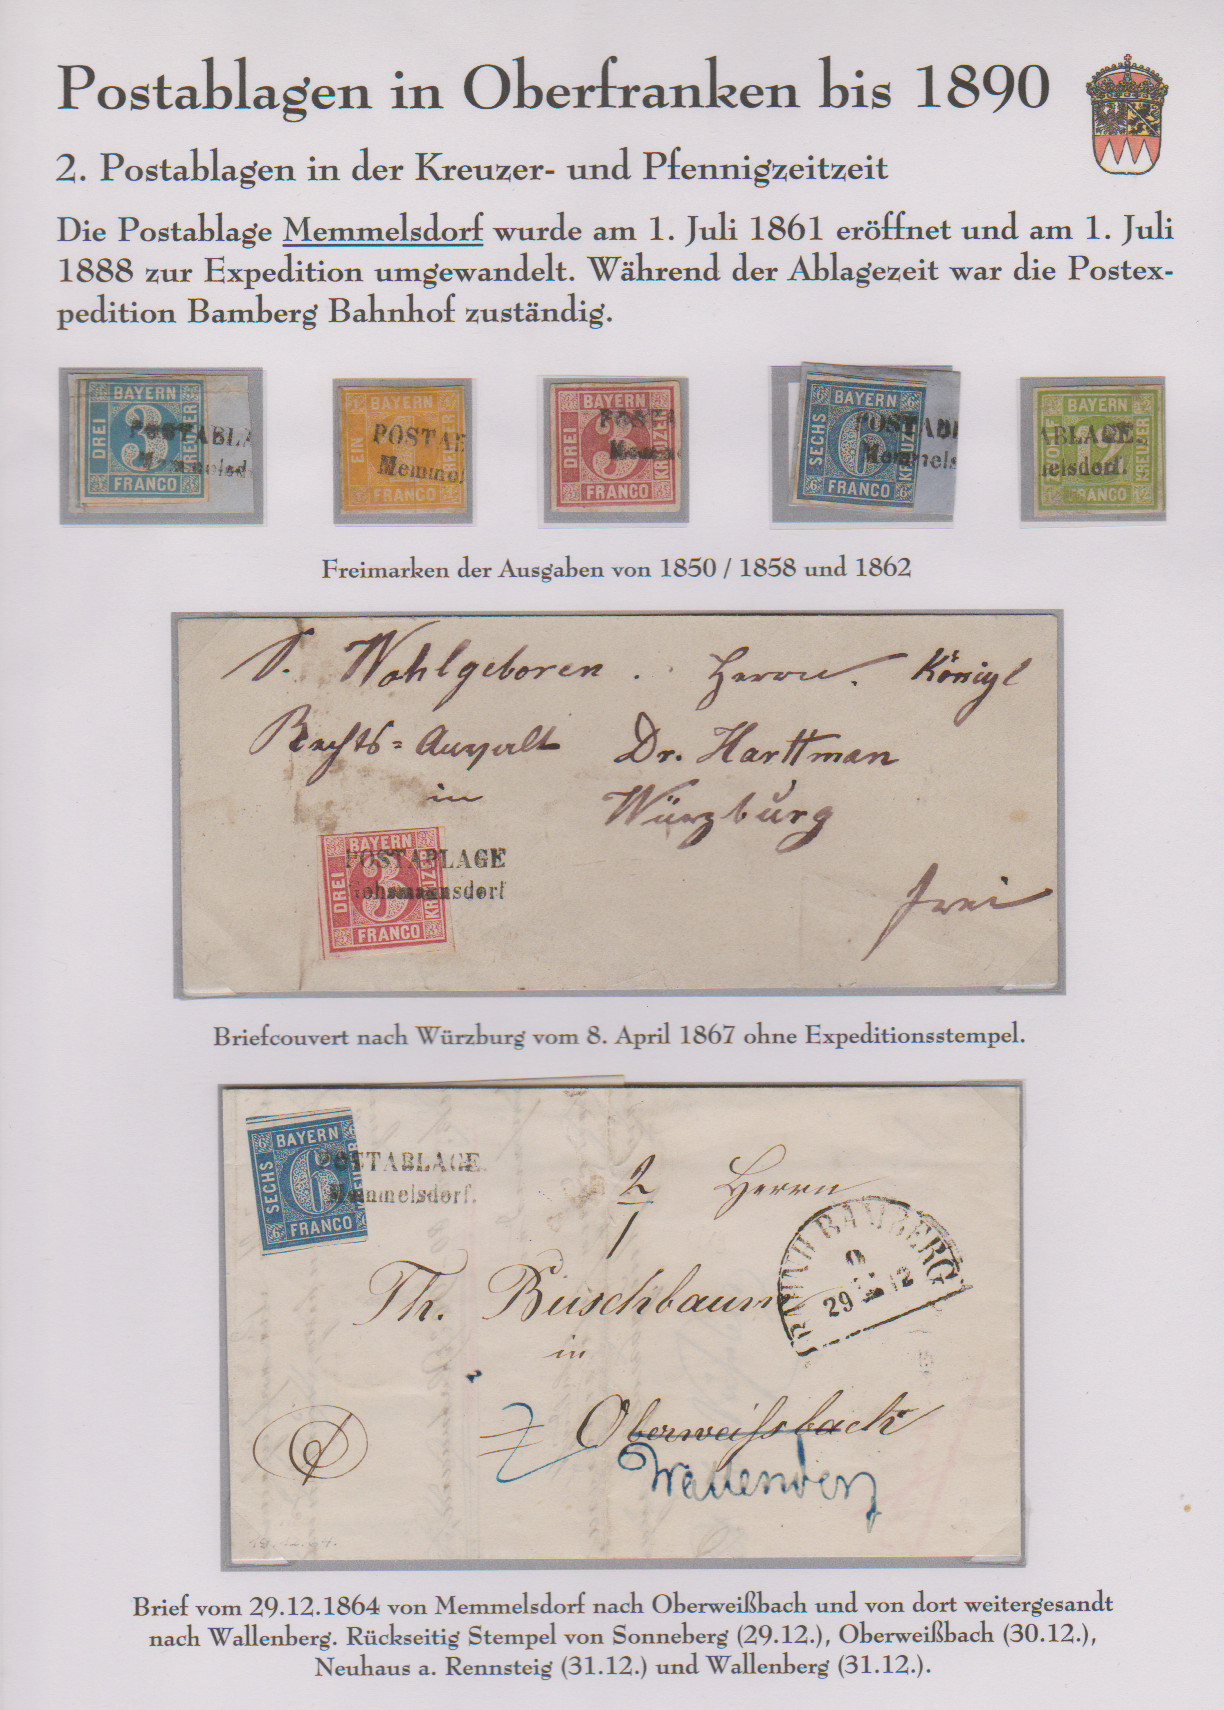 Postablagen in Oberfranken bis 1890
2. Postablagen in der Kreuzer- und Pfennigzeitzeit
Die Postablage Memmelsdorf wurde am 1. Juli 1861 eröffnet und am 1. Juli
1888 zur Expedition umgewandelt. Während der Ablagezeit war die Postex-
pedition Bamberg Bahnhof zuständig.
BAYERN
DREI
3
KREUZER
FRANCO
POSTABLA
Memmelsdo
BAYERN
EIN
1
KREUZER
FRANCO
POSTAB
Memmel
BAYERN
DREI
3
KREUZER
FRANCO
POSTA
BAYERN
SECHS
6
KREUZER
FRANCO
POSTABL
Memmels
BAYERN
ZWOLF
12
KREUZER
FRANCO
ABLAGE
elsdorf.
Freimarken der Ausgaben von 1850 / 1858 und 1862
Wohlgeboren. Herrn. Königl
Rechts=Anwalt Dr. Harttman
in Würzburg
frei
BAYERN
DREI
3
KREUZER
FRANCO
POSTABLAGE
Briefcouvert nach Würzburg vom 8. April 1867 ohne Expeditionsstempel.
BAYERN
SECHS
6
KREUZER
FRANCO
POSTABLAGE
Memmelsdorf.
2/1
Herrn
BAMBERG
29 12
Th. Buschbaum
in
Oberweißbach
Wallenberg
Brief vom 29.12.1864 von Memmelsdorf nach Oberweißbach und von dort weitergesandt
nach Wallenberg. Rückseitig Stempel von Sonneberg (29.12.), Oberweißbach (30.12.),
Neuhaus a. Rennsteig (31.12.) und Wallenberg (31.12.).